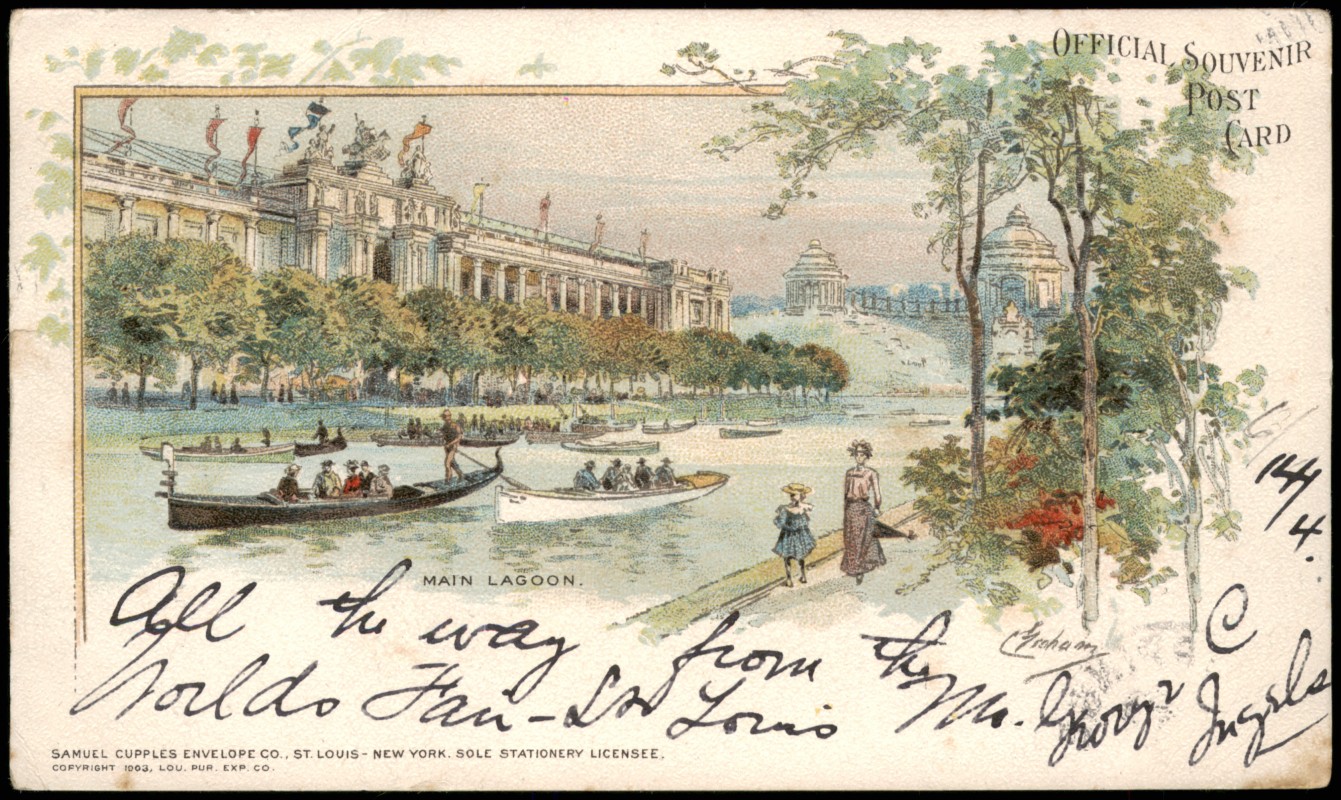 OFFICIAL SOUVENIR
POST
CARD
MAIN LAGOON.
Graham
All the way from the
Worlds Fair - St Louis Mo. George C
SAMUEL CUPPLES ENVELOPE CO., ST. LOUIS - NEW YORK. SOLE STATIONERY LICENSEE.
COPYRIGHT 1903, LOU. PUR. EXP. CO.